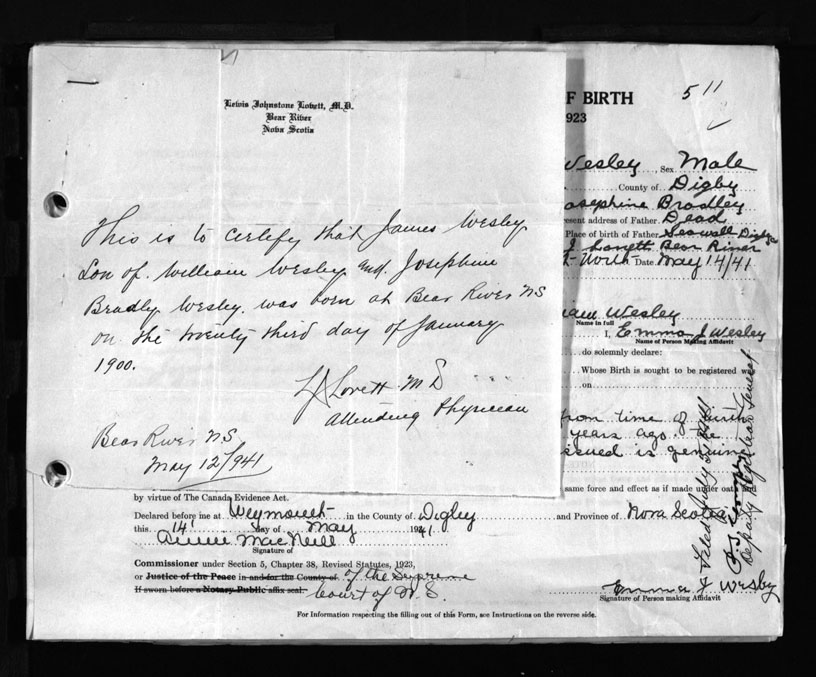 Lewis Johnstone Lovett, M.D.
Bear River
Nova Scotia
This is to certify that James Wesley
Son of William Wesley and Josephine
Bradly Wesley was born at Bear River NS
on the twenty third day of January
1900.
LJ Lovett MD
Attending Physician
Bear River N.S.
May 12/941
F BIRTH
923
511
Wesley, Sex Male
County of Digby
osephine Bradley
resent address of Father Dead
Place of birth of Father Seawall Digby
Bear River
Date May 14/41
iam Wesley
Name in full
I, Emma J Wesley
Name of Person Making Affidavit
do solemnly declare:
Whose Birth is sought to be registered was
on
from time of birth
years ago the
issued is genuine
same force and effect as if made under oath and
by virtue of The Canada Evidence Act.
Declared before me at Weymouth in the County of Digby and Province of Nova Scotia
this 14 day of May 1941
Annie MacNeill
Signature of
Commissioner under Section 5, Chapter 38, Revised Statutes, 1923,
or Justice of the Peace in and for the County of of the Supreme
If sworn before a Notary Public affix seal. Court of N.S.
Emma J Wesley
Signature of Person making Affidavit
For Information respecting the filling out of this Form, see Instructions on the reverse side.
Filed July 5 1941
Deputy Registrar General